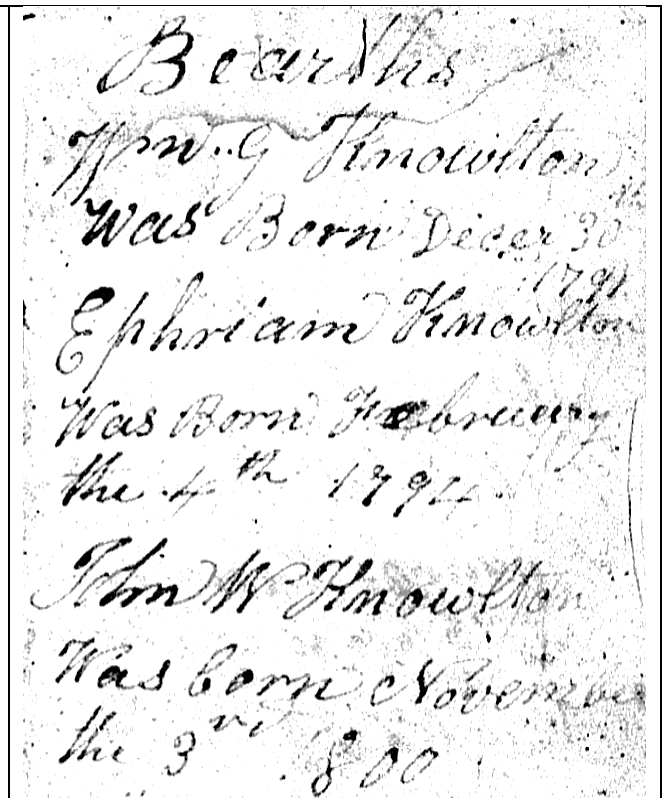 Bearths
Wm. G Knowlton
Was Born Decer 30
1791
Ephriam Knowlton
Was Born February
the 4th 1794
John W Knowlton
Was born November
the 3rd 1800